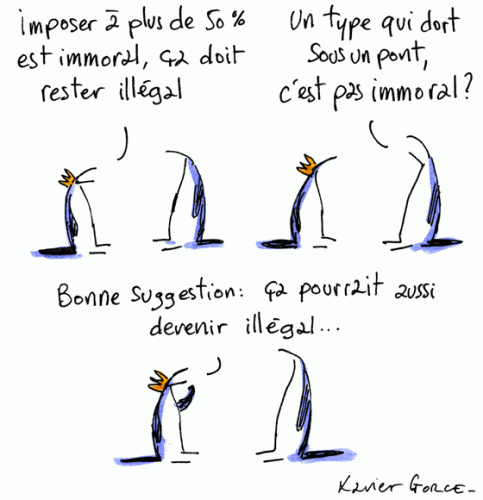 imposer à plus de 50 %
est immoral, ça doit
rester illégal
Un type qui dort
sous un pont,
c'est pas immoral?
Bonne suggestion: ça pourrait aussi
devenir illégal...
Xavier Gorce_